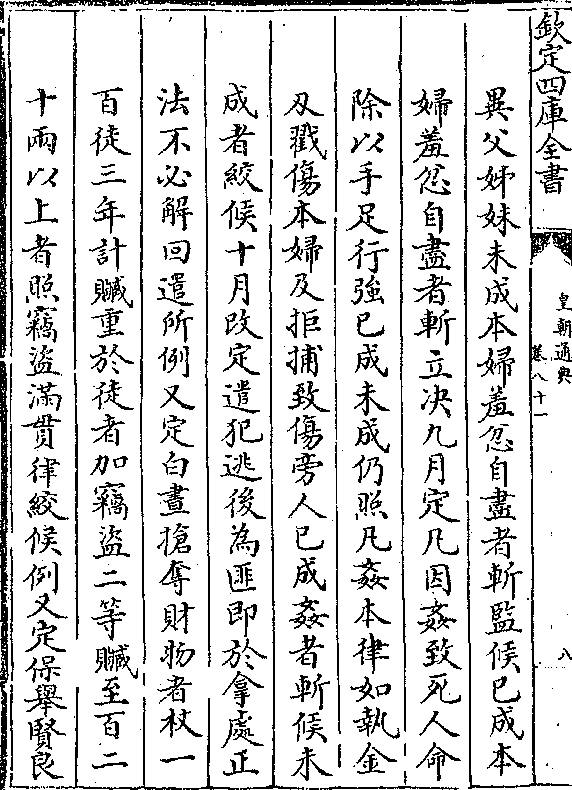 欽定四庫全書
皇朝通典
卷八十一
八
異父姊妹未成本婦羞忿自盡者斬監候已成本
婦羞忿自盡者斬立决九月定凡因姦致死人命
除以手足行強已成未成仍照凡姦本律如執金
刄戳傷本婦及拒捕致傷旁人已成姦者斬候未
成者絞候十月改定遣犯逃後為匪即於拿處正
法不必解回遣所例又定白晝搶奪財物者杖一
百徒三年計贓重於徒者加竊盜二等贓至百二
十兩以上者照竊盜滿貫律絞候例又定保舉賢良